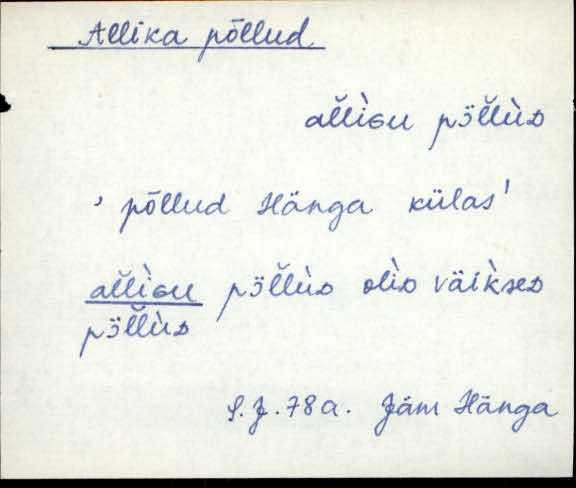 Allika põllud
al̆l̆ìɢu pɜ̈l̆l̆ùᴅ
' põllud Hänga külas'
al̆l̆ìɢu pɜ̈l̆l̆ùᴅ olìᴅ väìkseᴅ
pɜ̈l̆l̆ùᴅ
S.J. 78a. Jäm Hänga